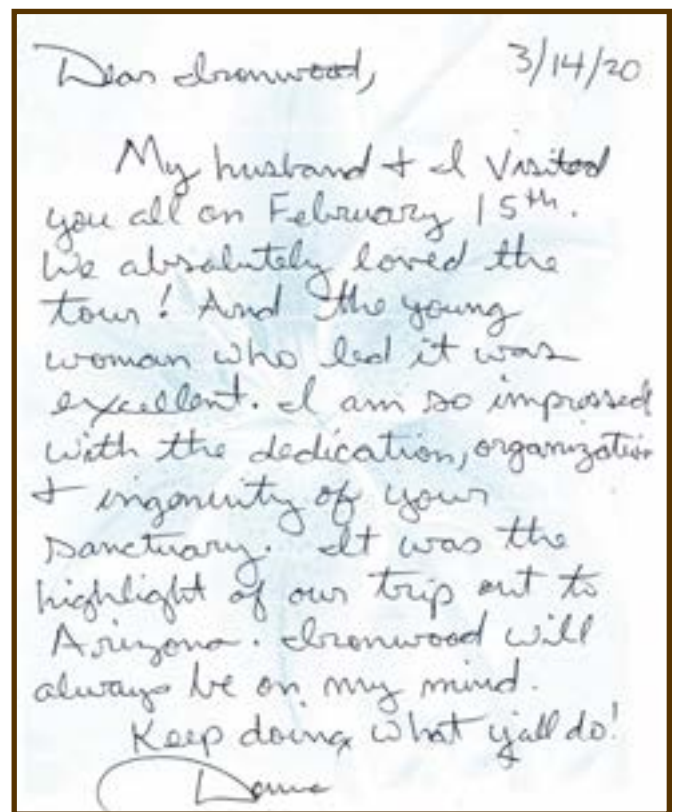 Dear Ironwood, 3/14/20
My husband + I visited
you all on February 15th.
We absolutely loved the
tour! And the young
woman who led it was
excellent. I am so impressed
with the dedication, organization
+ ingenuity of your
sanctuary. It was the
highlight of our trip out to
Arizona. Ironwood will
always be on my mind.
Keep doing what y'all do!